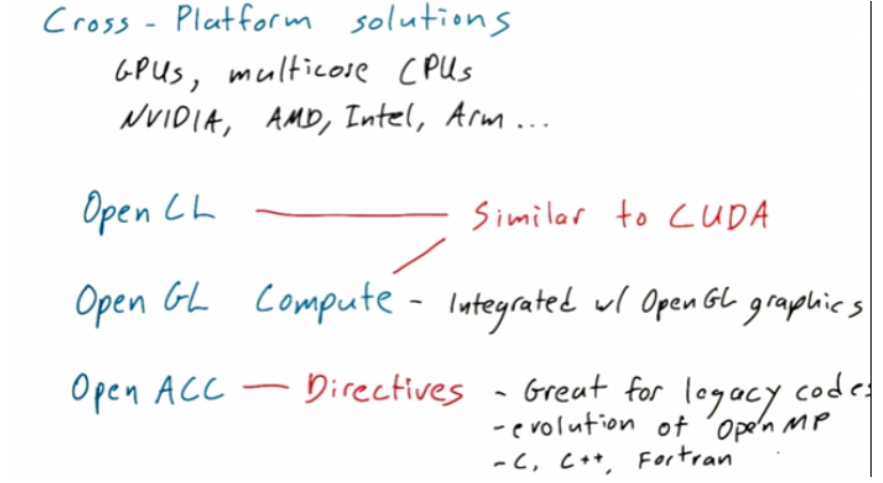 Cross - Platform solutions
GPUs, multicore CPUs
NVIDIA, AMD, Intel, Arm ...
Open CL — Similar to CUDA
Open GL Compute - Integrated w/ OpenGL graphics
Open ACC — Directives - Great for legacy codes
- evolution of OpenMP
- C, C++, Fortran